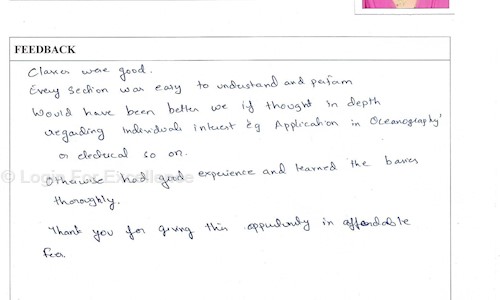 FEEDBACK
Classes were good.
Every section was easy to understand and perform
Would have been better we if thought in depth
regarding Individuals interest eg Application in Oceanography'
or electrical so on.
© Login For Excellence
Otherwise had good experience and learned the basics
thoroughly.
Thank you for giving this oppurtunity in affordable
fees.